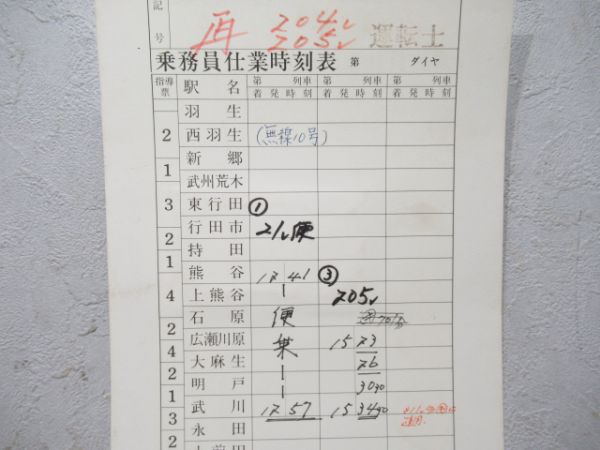 記号
再 204レ
205レ 運転士
乗務員仕業時刻表 第 ダイヤ
指導票 駅名 第 列車 第 列車
着発時刻 着発時刻
羽生
2 西羽生 (無線10号)
新郷
1 武州荒木
3 東行田 ①
2 行田市 21レ便
持田
1 熊谷 12 41 ③
4 上熊谷 205レ
石原 便
2 広瀬川原 乗 15 23
4 大麻生 26
2 明戸 30 30
1 武川 12 57 15 34 30
3 永田
2